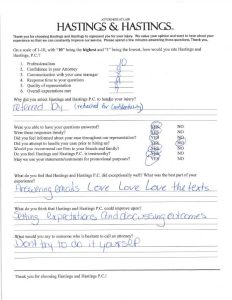 ATTORNEYS AT LAW
HASTINGS & HASTINGS
Thank you for choosing Hastings and Hastings to represent you for your injury. We value your opinion and want to hear about your
experience so that we can constantly improve our service. Please spend a few minutes answering these questions. Thank you.
On a scale of 1-10, with "10" being the highest and "1" being the lowest, how would you rate Hastings and
Hastings, P.C.?
1. Professionalism 10
2. Confidence in your Attorney
3. Communication with your case manager
4. Response time to your questions
5. Quality of representation
6. Overall expectations met
Why did you select Hastings and Hastings P.C. to handle your injury?
Referred by
Were you able to have your questions answered? YES NO
Were these responses timely? YES NO
Did you feel informed about your case throughout our representation? YES NO
Did you attempt to handle your case prior to hiring us? YES NO
Would you recommend our firm to your friends and family? YES NO
Do you feel Hastings and Hastings P.C. is trustworthy? YES NO
May we use your statements/comments for promotional purposes? YES NO
What do you feel that Hastings and Hastings P.C. did exceptionally well? What was the best part of your
experience?
Answering emails Love Love Love the texts.
What do you think that Hastings and Hastings P.C. could improve upon?
Setting expectations and discussing outcomes
What would you say to someone who is hesitant to call an attorney?
Don't try to do it yourself
Thank you for choosing Hastings and Hastings P.C.!